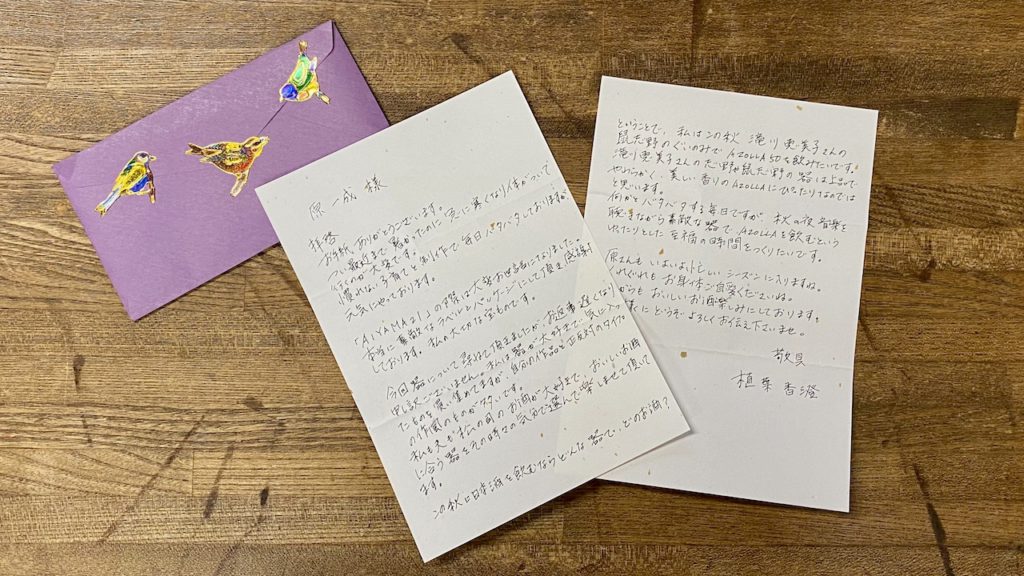 原 一成 様
拝啓
お手紙、ありがとうございます。
つい最近まで暑かったのに急に寒くなり体がついて
行くのが大変です。
慣れない子育てと制作で毎日バタバタしておりますが、
元気にやっております。
「AIYAMA21」の際は大変お世話になりました。
本当に素敵なラベルとパッケージにして頂き感謝
しております。私の大切な宝ものです。
今回器について尋ねて頂きましたが、お返事が遅くなり
申訳ございません。私は器が大好きで、気に入っ
たものを買い集めてますが、自分の作品とは正反対のタイプ
の作風のものが好きです。
私も夫も松の司のお酒が大好きで、おいしいお酒
に合う器をその時々の気分で選んで楽しませて頂いて
ます。
この秋に日本酒を飲むならどんな器で、どのお酒?
ということで、私はこの秋 滝川恵美子さんの
鼠志野のぐいのみで AZOLLA50を飲みたいです。
滝川恵美子さんの志野や鼠志野の器は上品で
やわらかく、美しい香りのAZOLLAにぴったりなのでは
と思います。
何かとバタバタする毎日ですが、秋の夜 音楽を
聴きながら素敵な器で、AZOLLAを飲むという
ゆったりとした至福の時間をつくりたいです。
原さんもいよいよ忙しいシーズンに入りますね。
くれぐれもお身体ご自愛くださいね。
おいしいお酒楽しみにしております。
にどうぞよろしくお伝え下さいませ。
敬具
植葉香澄